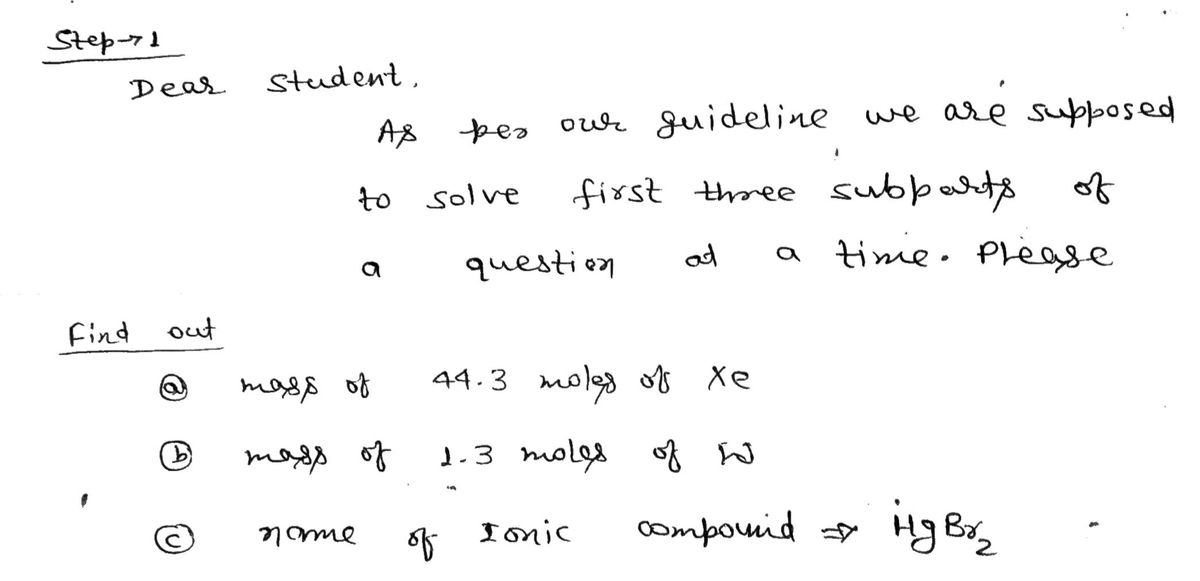 Step→1
Dear Student.
As per our guideline we are supposed
to solve first three subparts of
a question at a time. Please
Find out
ⓐ mass of 44.3 moles of Xe
ⓑ mass of 1.3 moles of W
ⓒ name of Ionic compound ⇒ HgBr₂